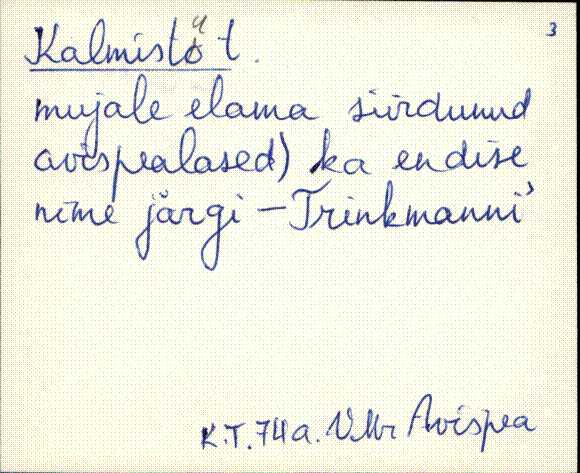 3
Kalmistö t.
mujale elama siirdunud
avispealased) ka endise
nime järgi – Trinkmanni'
K.T. 74 a. VMr Avispea